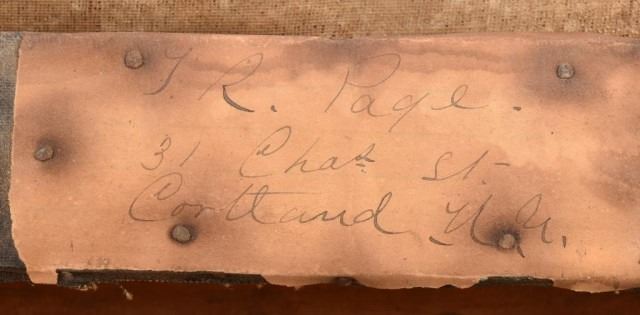 T. R. Page.
31 Chas St.
Cortland N.Y.